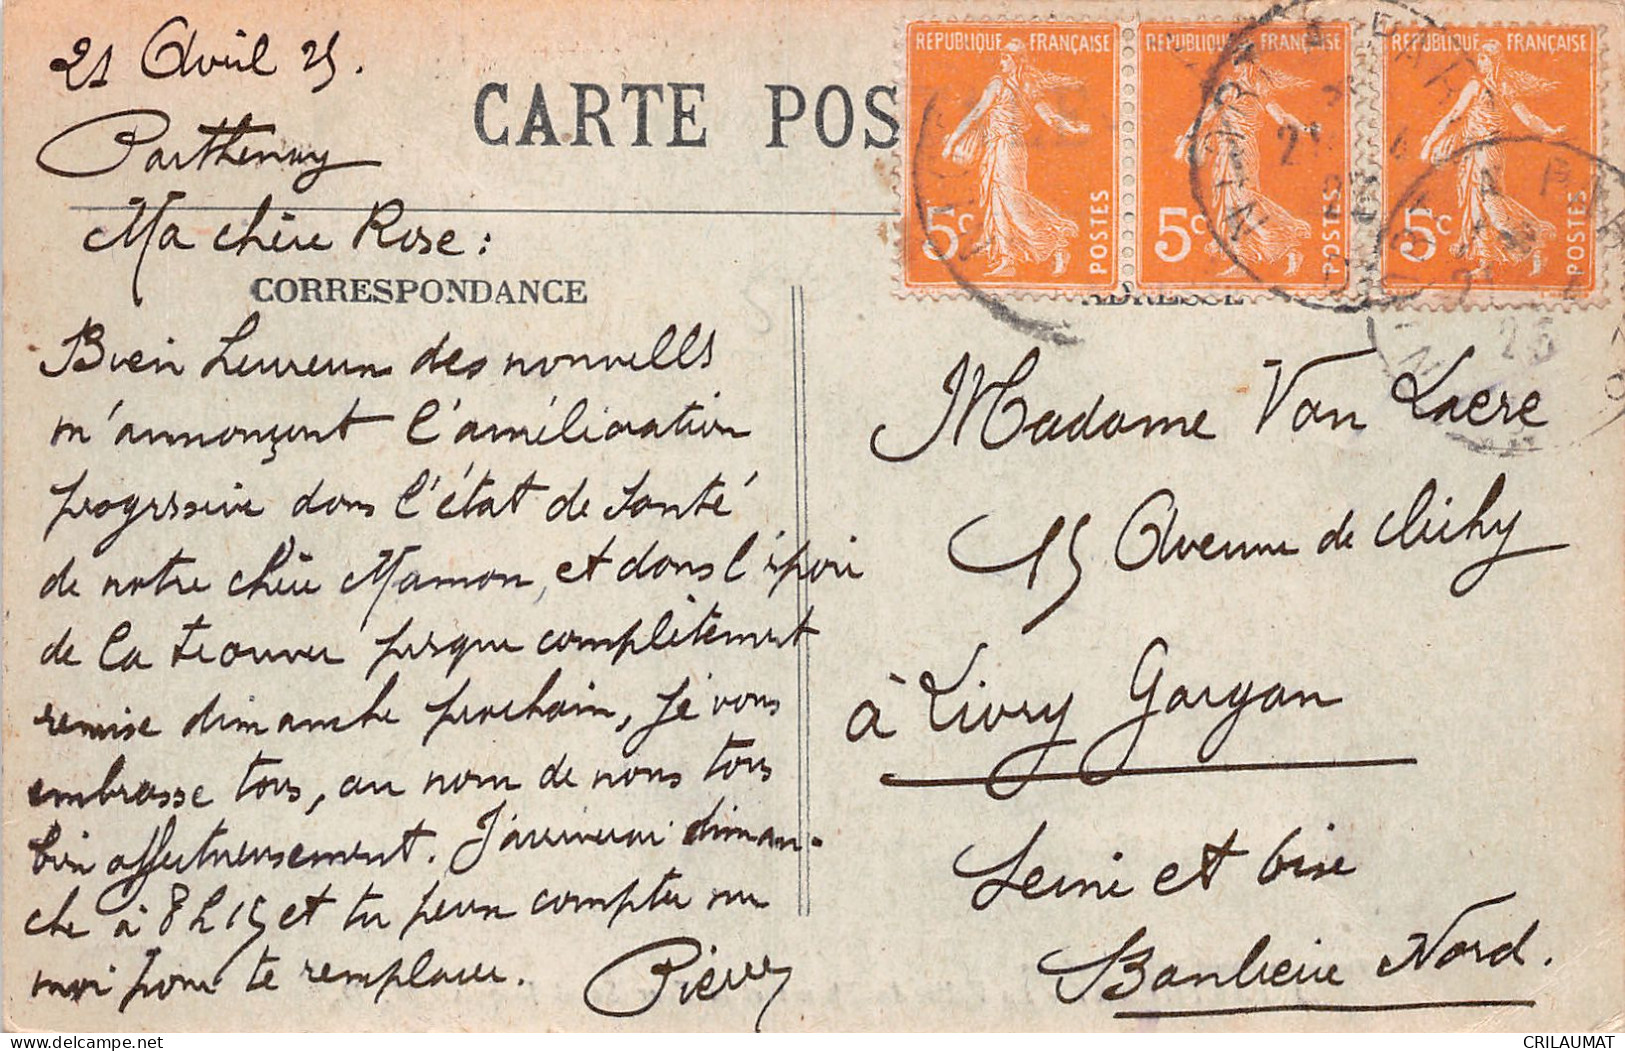 21 Avril 25.
Parthenay
CARTE POS
REPUBLIQUE FRANÇAISE
5c
POSTES
REPUBLIQUE FRANÇAISE
5c
POSTES
REPUBLIQUE FRANÇAISE
5c
POSTES
Ma chère Rose :
CORRESPONDANCE
ADRESSE
Bien heureux des nouvelles
m'annonçant l'amélioration
progressive dans l'état de santé
de notre chère Maman, et dans l'espoir
de la trouver presque complètement
remise dimanche prochain, je vous
embrasse tous, au nom de nous tous
bien affectueusement. J'arriverai diman-
che à 8h15 et tu peux compter sur
moi pour te remplacer. Pierre
Madame Van Laere
15 Avenue de Clichy
à Livry Gargan
Seine et Oise
Banlieue Nord.
CRILAUMAT